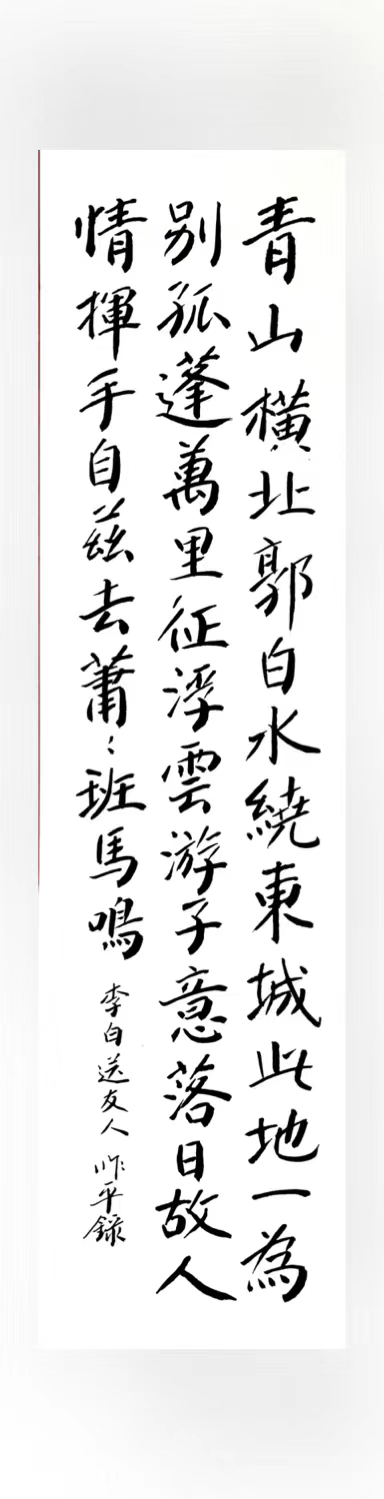 青山橫北郭白水繞東城此地一為
別孤蓬萬里征浮雲游子意落日故人
情揮手自茲去蕭〻班馬鳴
李白送友人 平錄